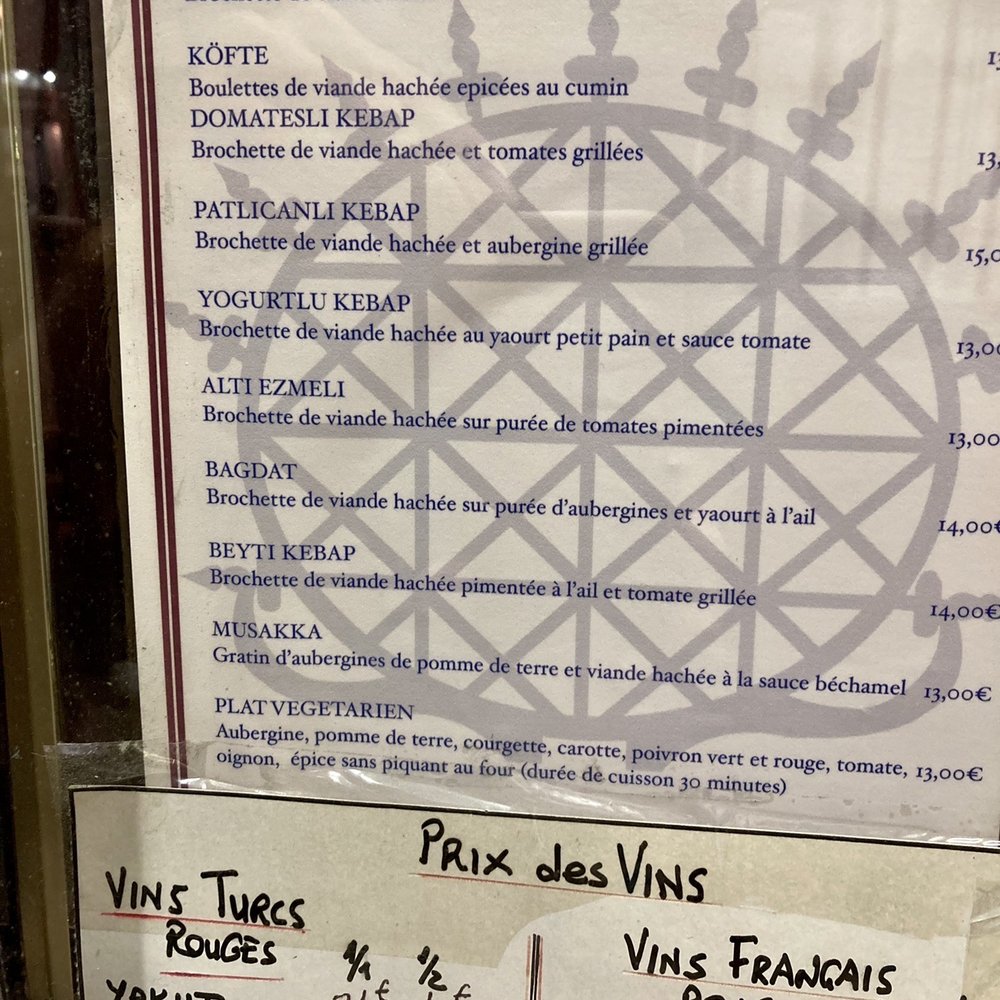 KÖFTE
Boulettes de viande hachée epicées au cumin
DOMATESLI KEBAP
Brochette de viande hachée et tomates grillées 13,
PATLICANLI KEBAP
Brochette de viande hachée et aubergine grillée 15,0
YOGURTLU KEBAP
Brochette de viande hachée au yaourt petit pain et sauce tomate 13,00
ALTI EZMELI
Brochette de viande hachée sur purée de tomates pimentées 13,00
BAGDAT
Brochette de viande hachée sur purée d'aubergines et yaourt à l'ail 14,00€
BEYTI KEBAP
Brochette de viande hachée pimentée à l'ail et tomate grillée 14,00€
MUSAKKA
Gratin d'aubergines de pomme de terre et viande hachée à la sauce béchamel 13,00€
PLAT VEGETARIEN
Aubergine, pomme de terre, courgette, carotte, poivron vert et rouge, tomate, 13,00€
oignon, épice sans piquant au four (durée de cuisson 30 minutes)
PRIX des VINS
VINS TURCS
ROUGES 1/1 1/2
VINS FRANCAIS